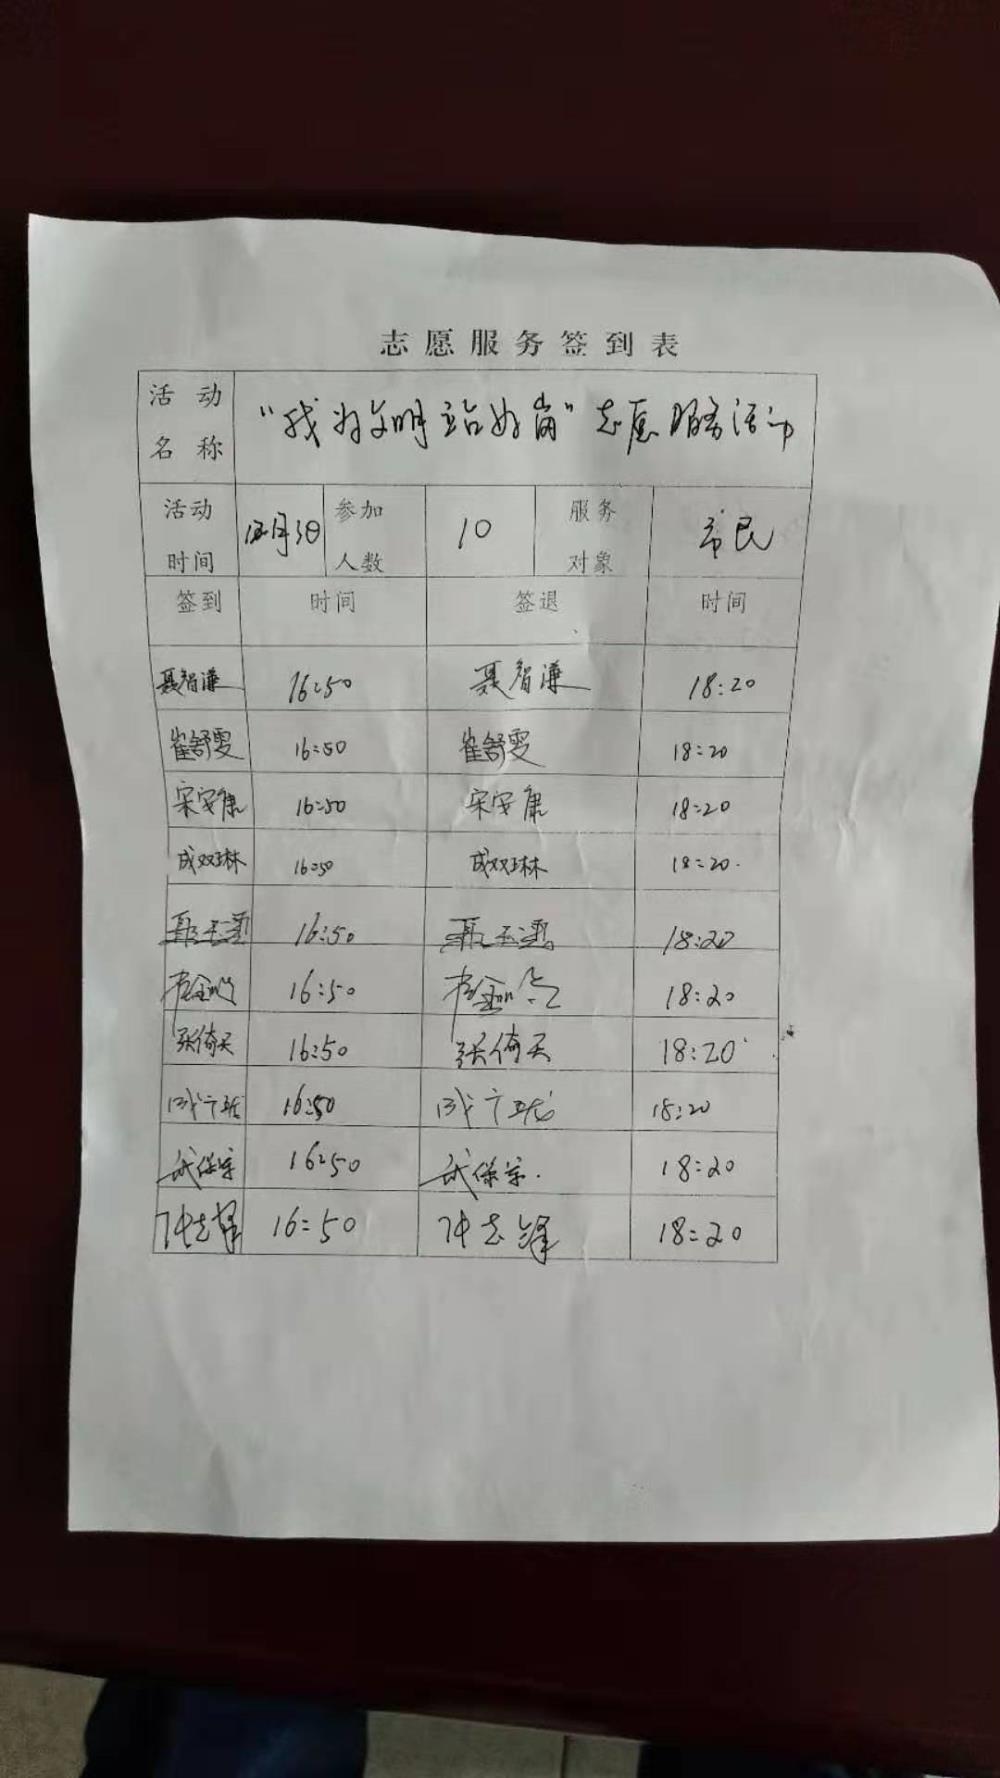 志愿服务签到表
活动名称 "我为文明站好岗"志愿服务活动
活动时间 月3日 参加人数 10 服务对象 市民
签到 时间 签退 时间
聂智谦 16:50 聂智谦 18:20
崔舒雯 16:50 崔舒雯 18:20
宋安康 16:50 宋安康 18:20
成双琳 16:50 成双琳 18:20
16:50 18:20
16:50 18:20
张倚天 16:50 张倚天 18:20
16:50 18:20
武保宗 16:50 武保宗. 18:20
志锋 16:50 志锋 18:20